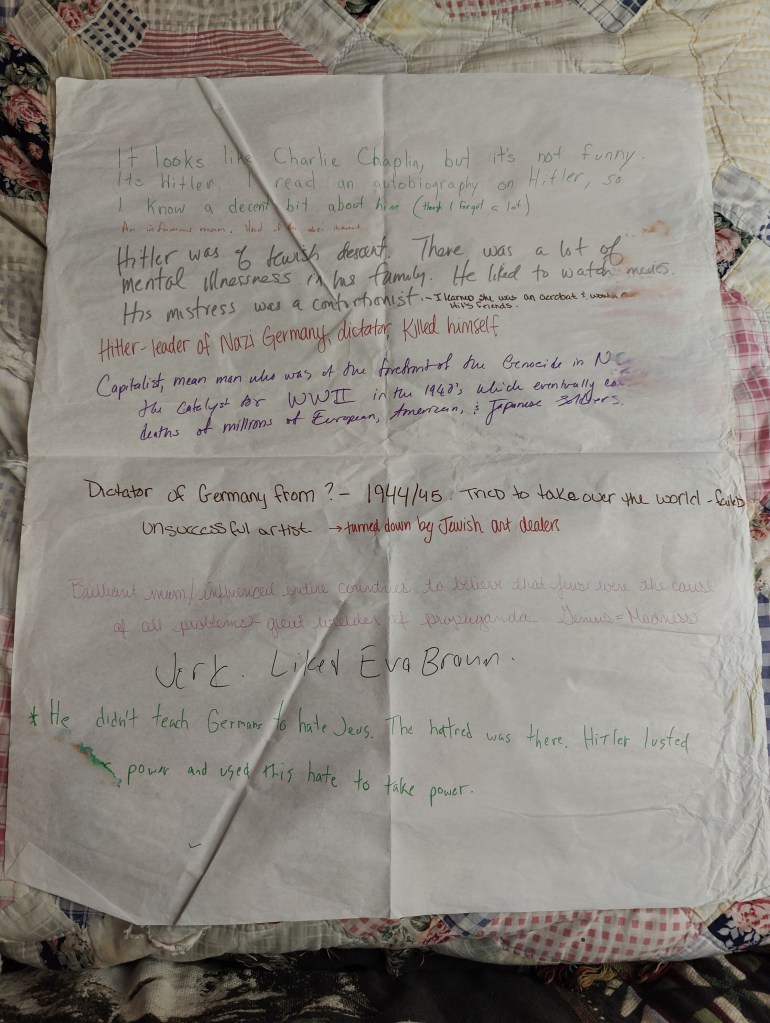 It looks like Charlie Chaplin, but it's not funny.
Its Hitler. I read an autobiography on Hitler, so
I know a decent bit about him (though I forgot a lot)
An infamous man.
Hitler was of Jewish descent. There was a lot of
mental illnessness in his family. He liked to watch movies.
His mistress was a contortionist. - I learned she was an acrobat &
Hit's friends.
Hitler - leader of Nazi Germany, dictator, Killed himself
Capitalist, mean man who was at the forefront of the Genocide in
the catalyst for WWII in the 1940's, which eventually
deaths of millions of European, American, & Japanese soldiers.
Dictator of Germany from ? - 1944/45. Tried to take over the world - failed
Unsuccessful artist → turned down by Jewish art dealers
Brilliant man/influenced entire countries to believe that Jews were the cause
of all problems - great wielder of propaganda Genius = Madness
Jerk. Liked Eva Braun.
* He didn't teach Germans to hate Jews. The hatred was there. Hitler lusted
power and used this hate to take power.